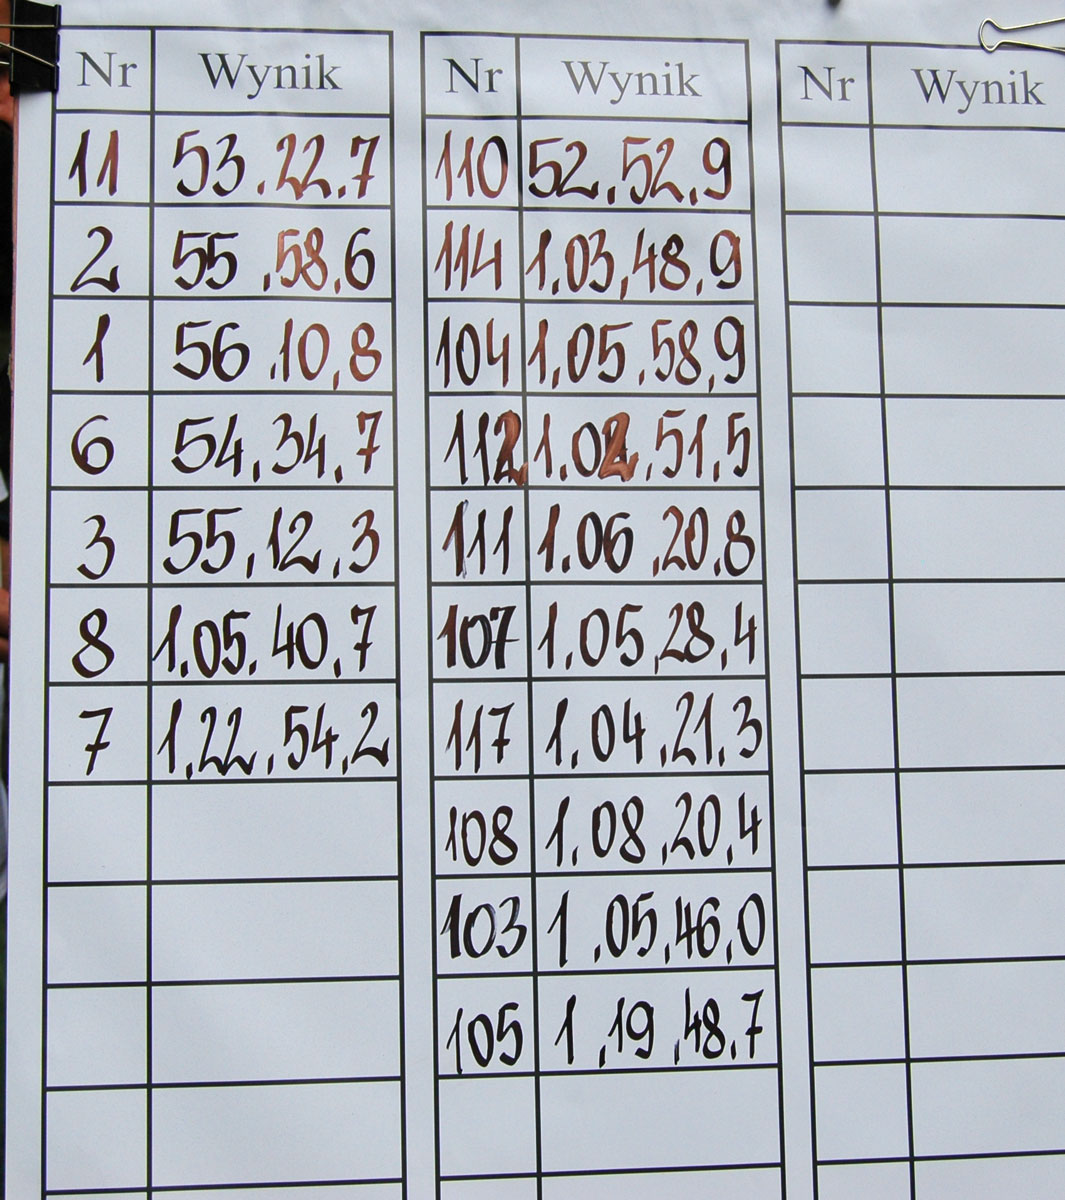 Nr Wynik
11 53.22.7
2 55.58.6
1 56.10,8
6 54.34.7
3 55,12,3
8 1.05.40,7
7 1,22.54,2
Nr Wynik
110 52,52,9
114 1.03,48,9
104 1,05.58,9
112 1.02.51,5
111 1.06,20,8
107 1.05,28,4
117 1,04,21,3
108 1.08,20,4
103 1,05,46,0
105 1,19,48,7
Nr Wynik